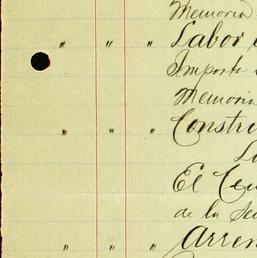 Memoria
" " " Labor
Importe
Memoria
" " " Constru
El Cen
de la Se
" " " Arren